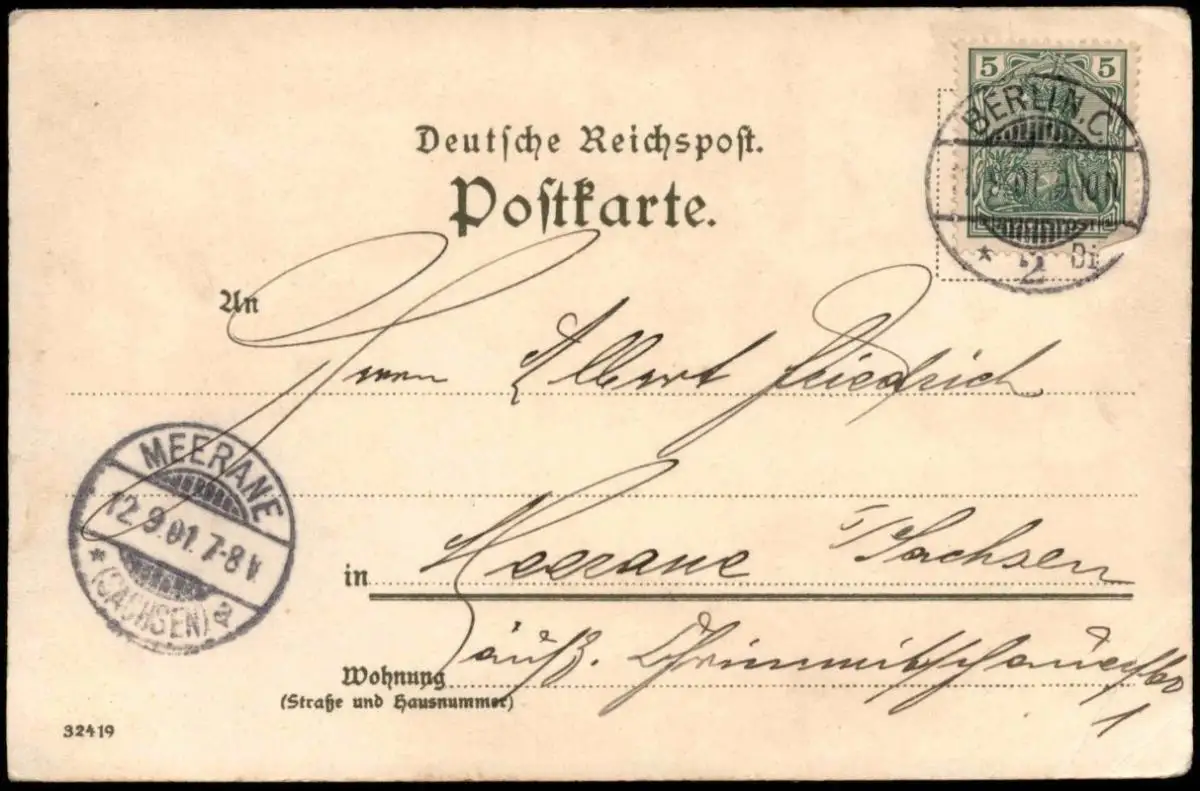 5 5
BERLIN.C.
.01.
* 2 Di
Deutsche Reichspost.
Postkarte.
An
Herrn Albert Friedrich
MEERANE
12.9.01.7-8V
* (SACHSEN) a
in Meerane i/Sachsen
Wohnung äuß. Crimmitschauerstr
(Straße und Hausnummer)
1
32419